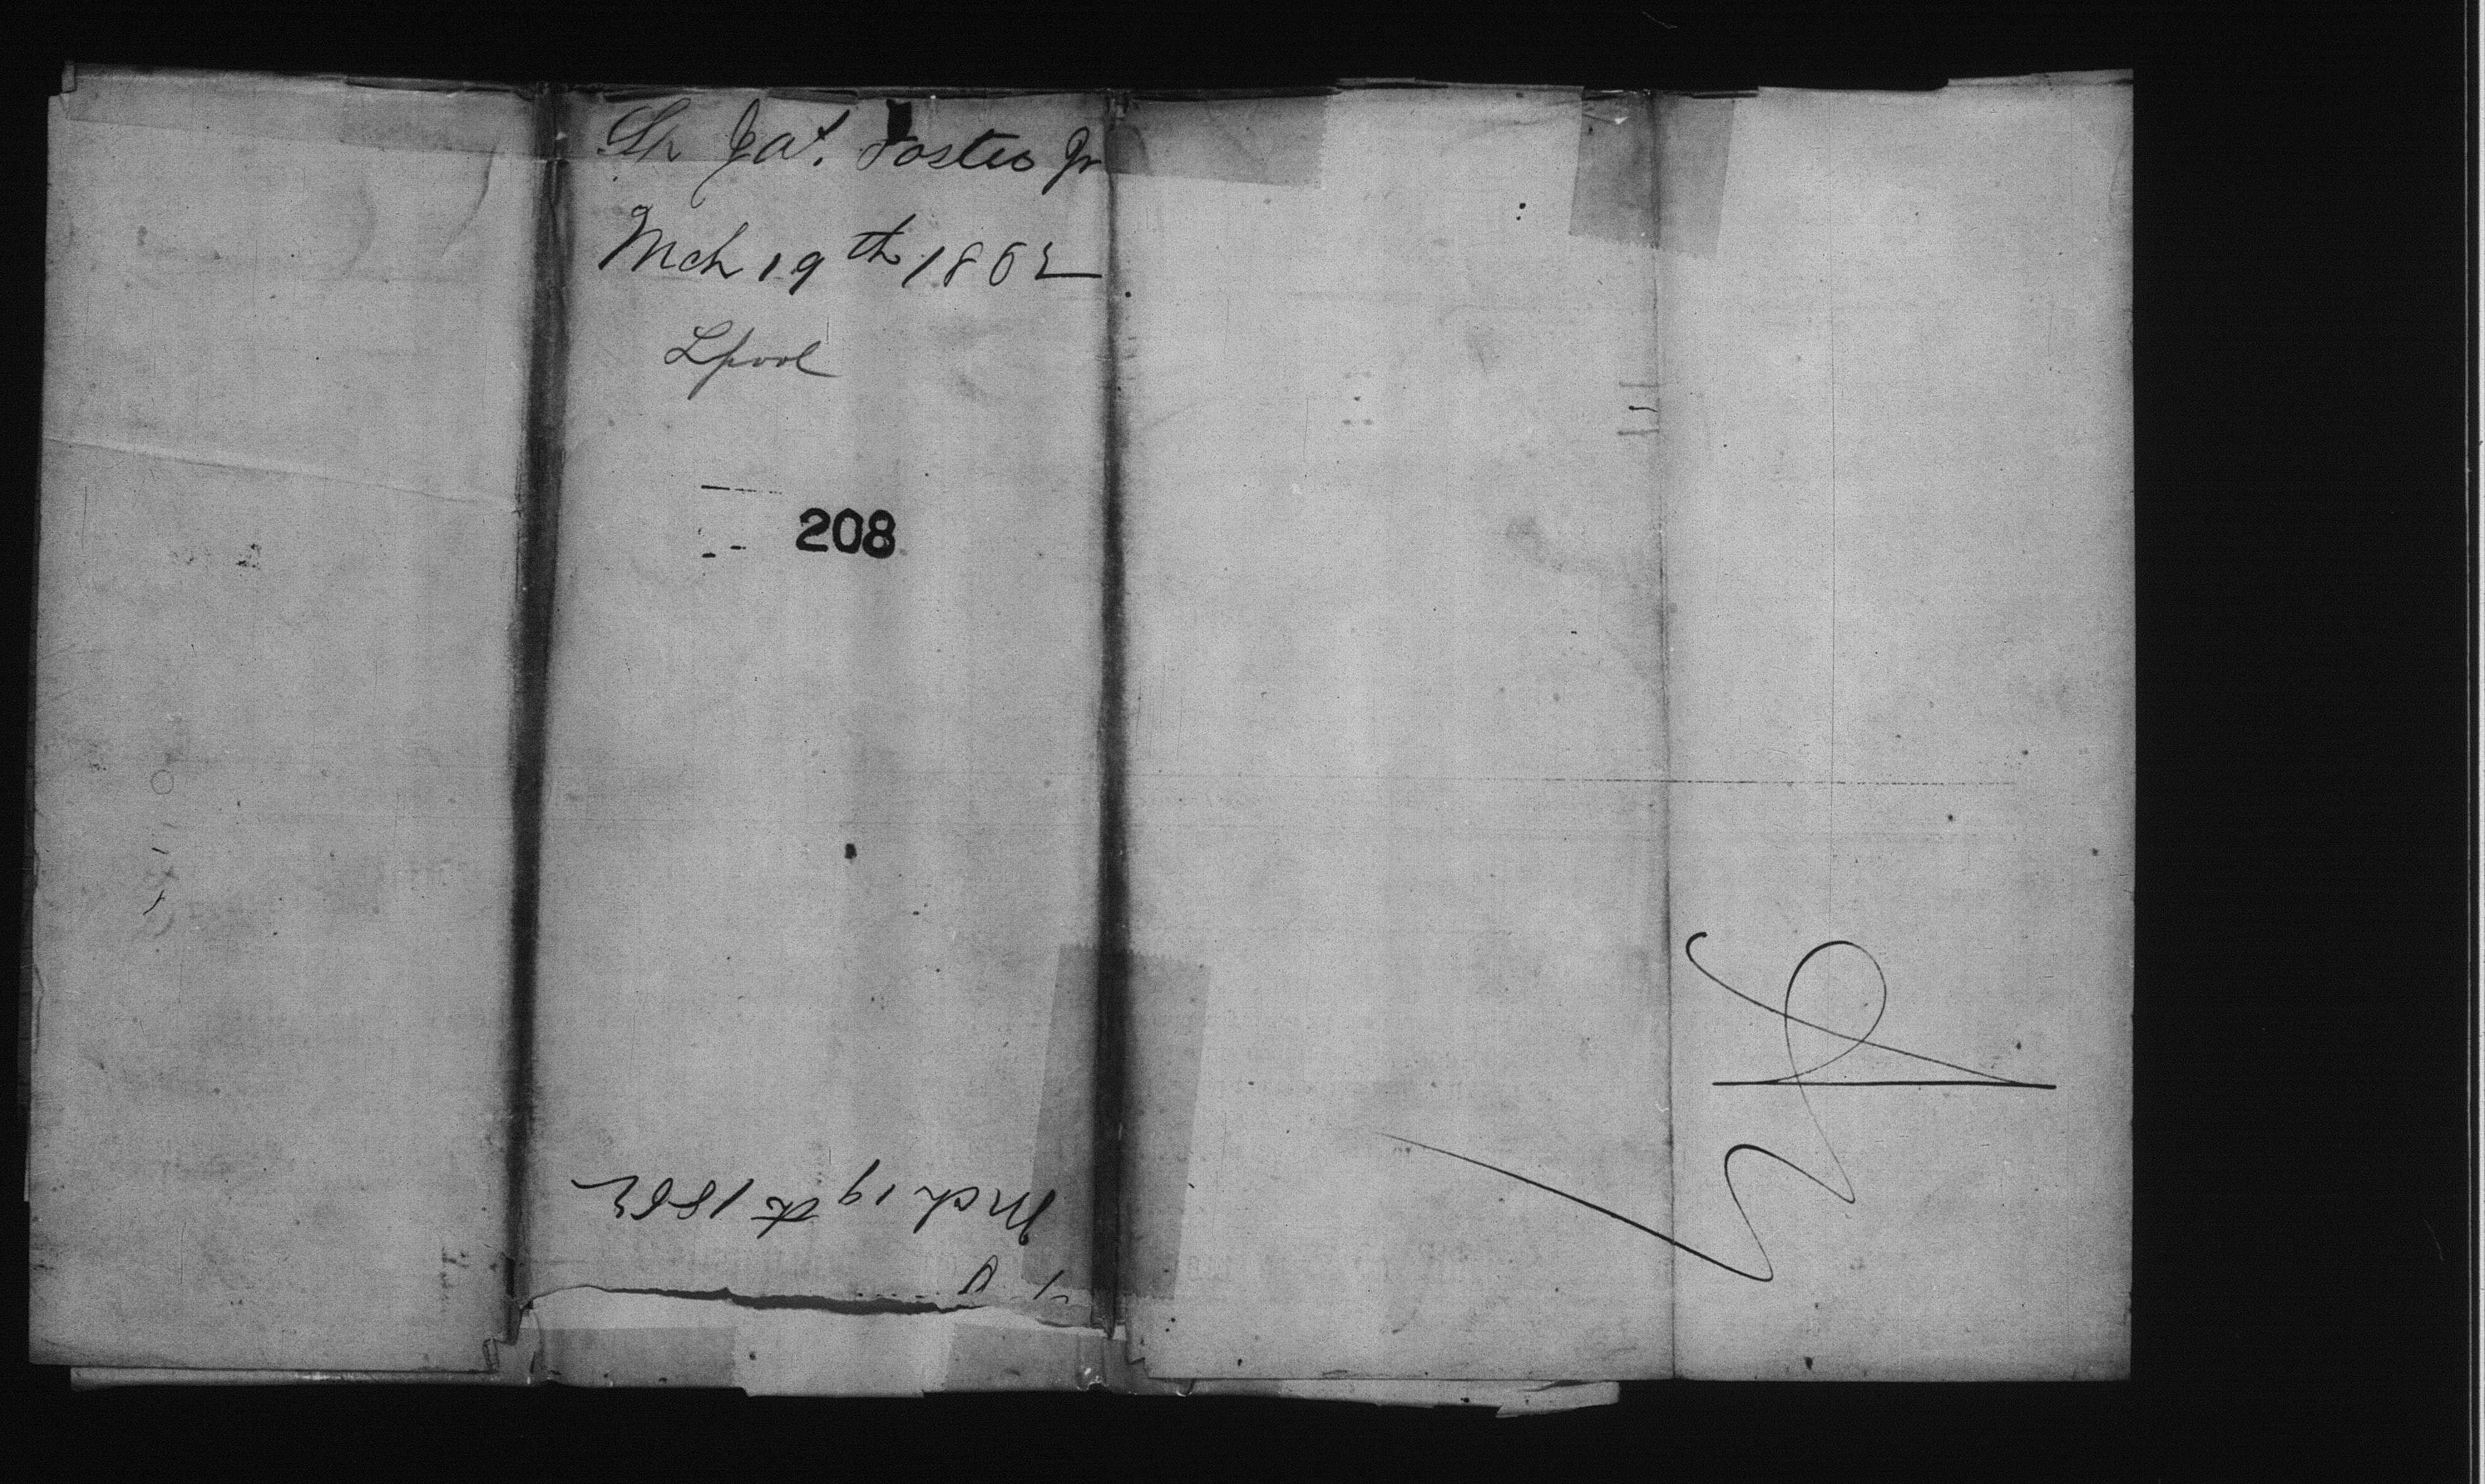 Sh Jas. Foster Jr
Mch 19th 1862
Lpool
208
Mch 19th 1862